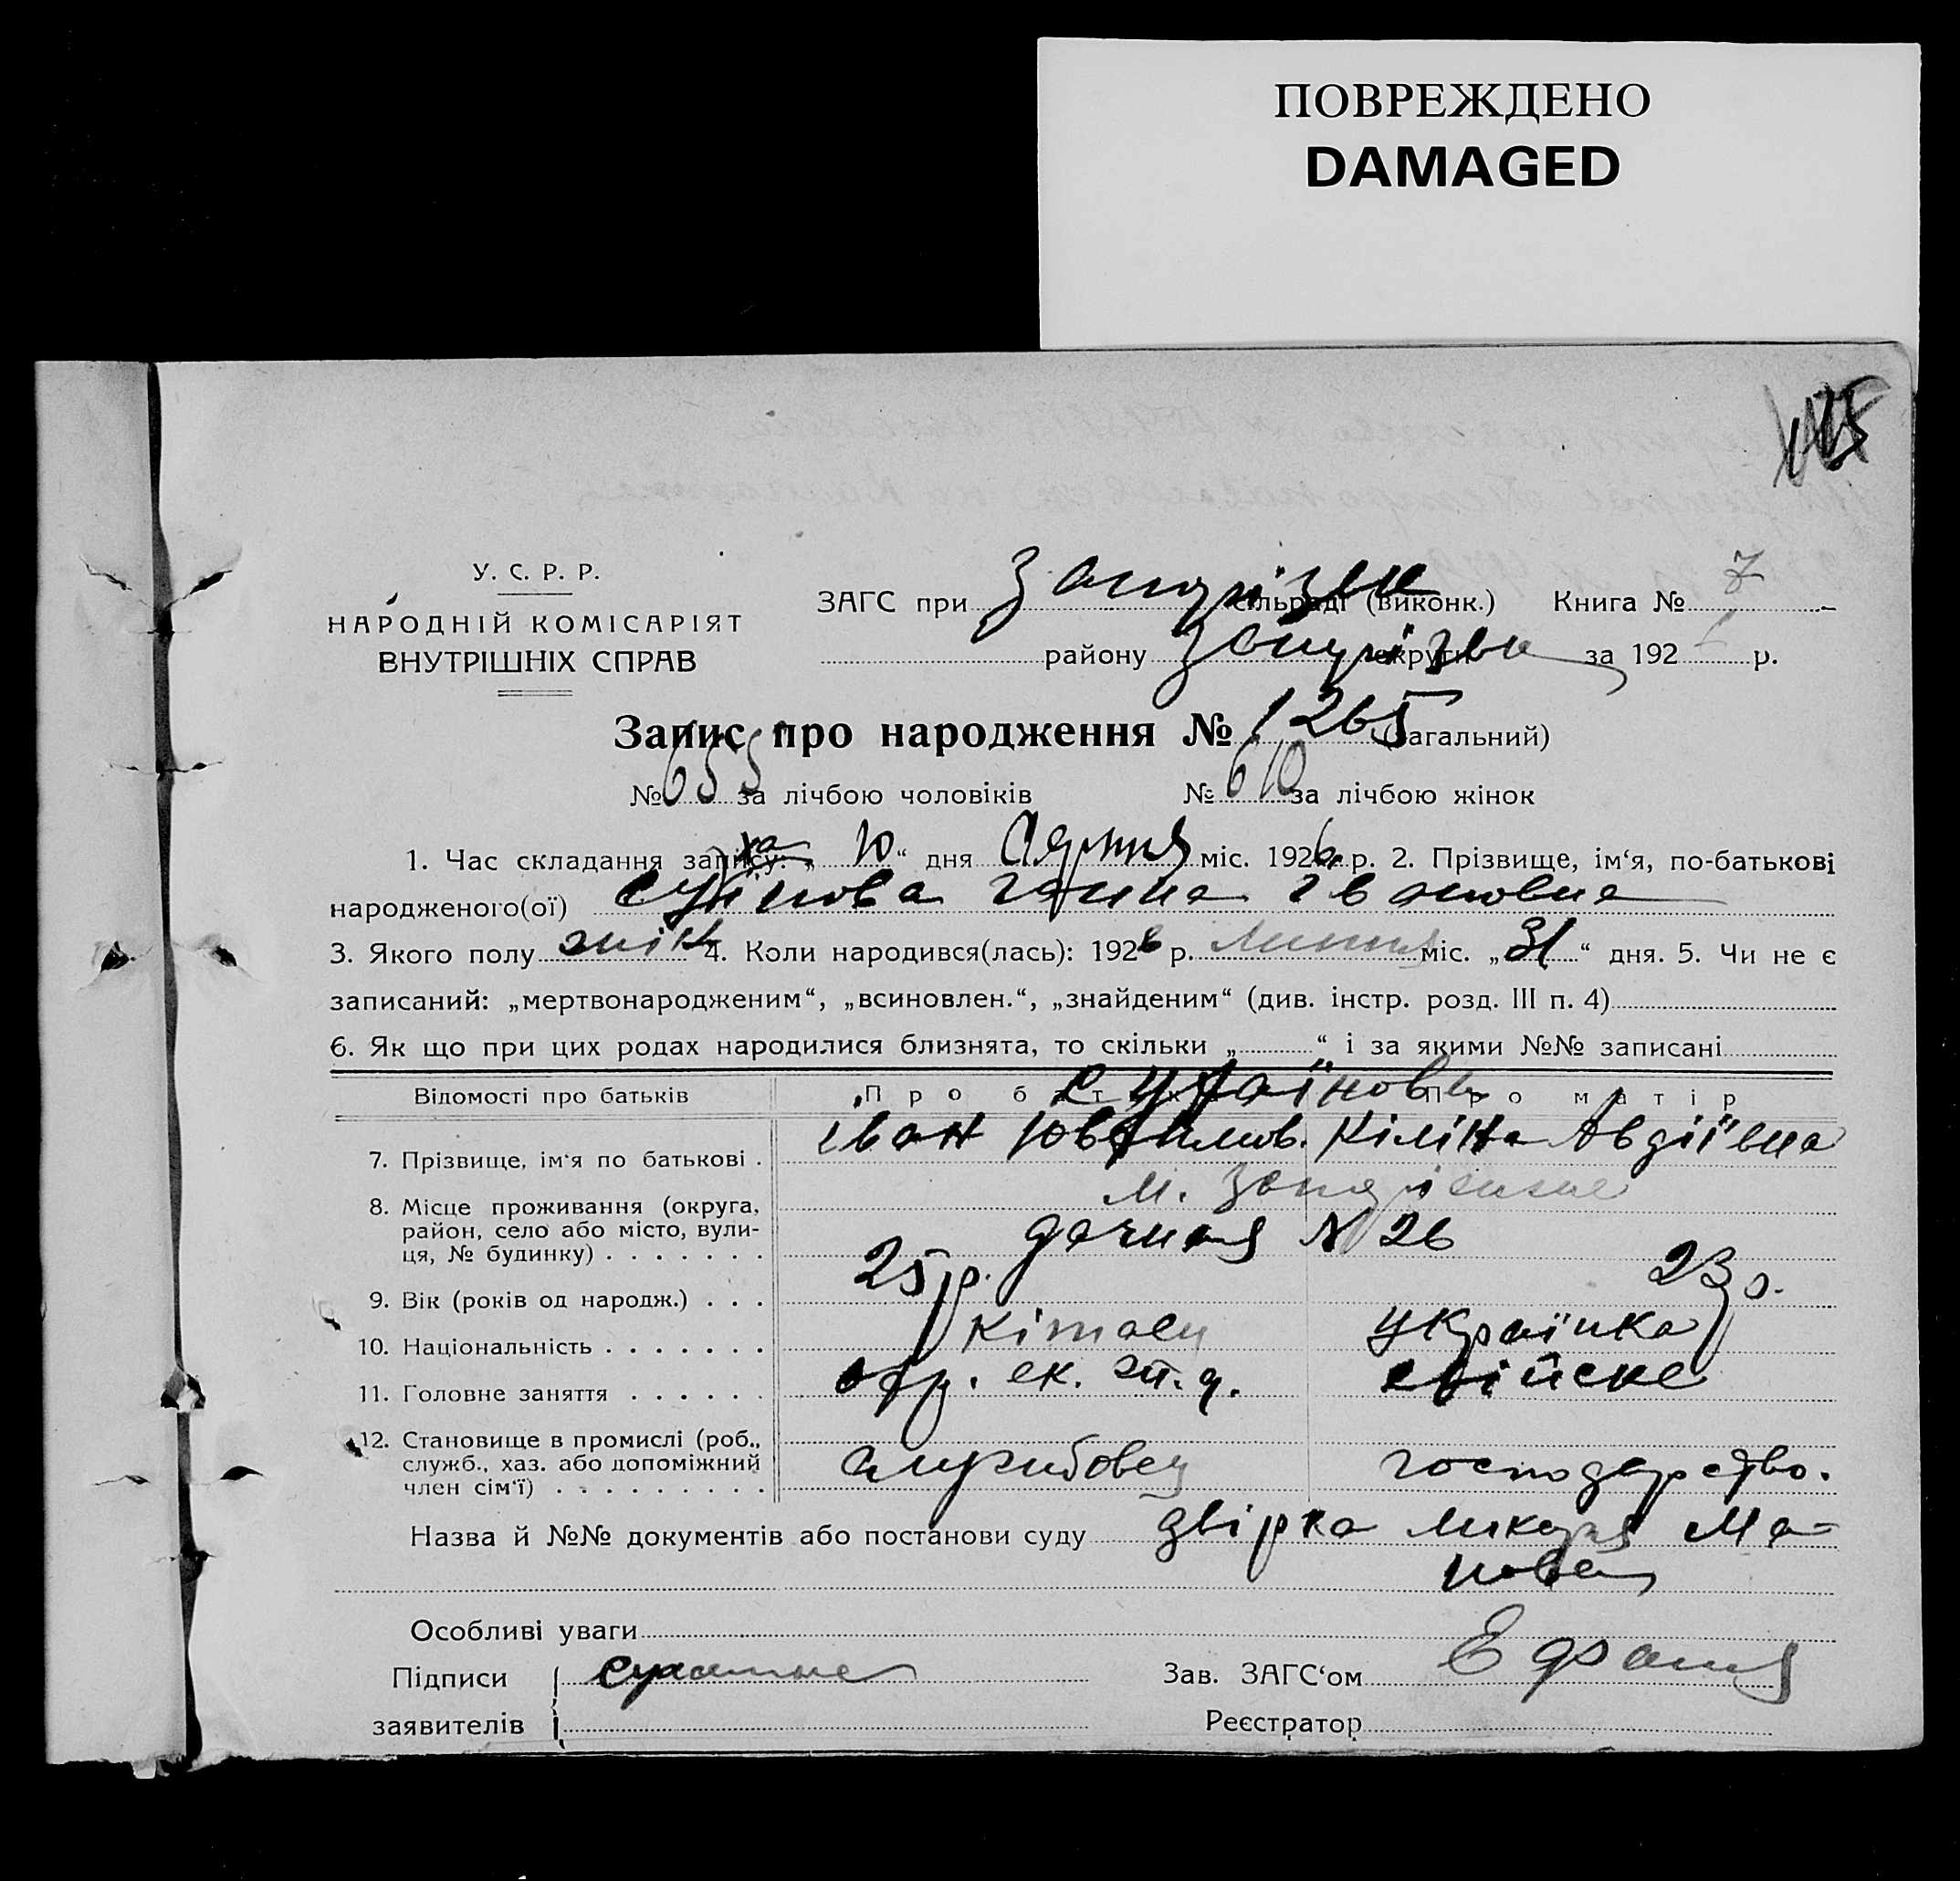 ПОВРЕЖДЕНО
DAMAGED
125
У. С. Р. Р.
НАРОДНІЙ КОМІСАРІЯТ
ВНУТРІШНІХ СПРАВ
ЗАГС при сільраді (виконк.) Книга № 7
району округи за 192 р.
Запис про народження № 1265 (загальний)
№ 655 за лічбою чоловіків № 610 за лічбою жінок
1. Час складання запису: „ 10 “ дня Серпня міс. 1926 р. 2. Прізвище, ім‘я, по-батькові
народженого(ої) Ганна Івановна
3. Якого полу жін 4. Коли народився(лась): 1926 р. Липня міс. „ 31 “ дня. 5. Чи не є
записаний: „мертвонародженим“, „всиновлен.“, „знайденим“ (див. інстр. розд. III п. 4)
6. Як що при цих родах народилися близнята, то скільки „ “ і за якими №№ записані
Відомості про батьків Про батька Про матір
7. Прізвище, ім‘я по батькові . Іван Кіліна Авдіївна
8. Місце проживання (округа, м. Запоріжжє
район, село або місто, вули-
ця, № будинку) . . . . . . . дачная № 26
9. Вік (років од народж.) . . . 25 р. 23 р.
10. Національність . . . . . . . українка
11. Головне заняття . . . . . . ек.
12. Становище в промислі (роб.,
служб., хаз. або допоміжний
член сім‘ї) . . . . . . . . . службовец господарство.
Назва й №№ документів або постанови суду двірка лікаря Ма-
новей
Особливі уваги
Підписи Зав. ЗАГС‘ом
заявителів Реєстратор